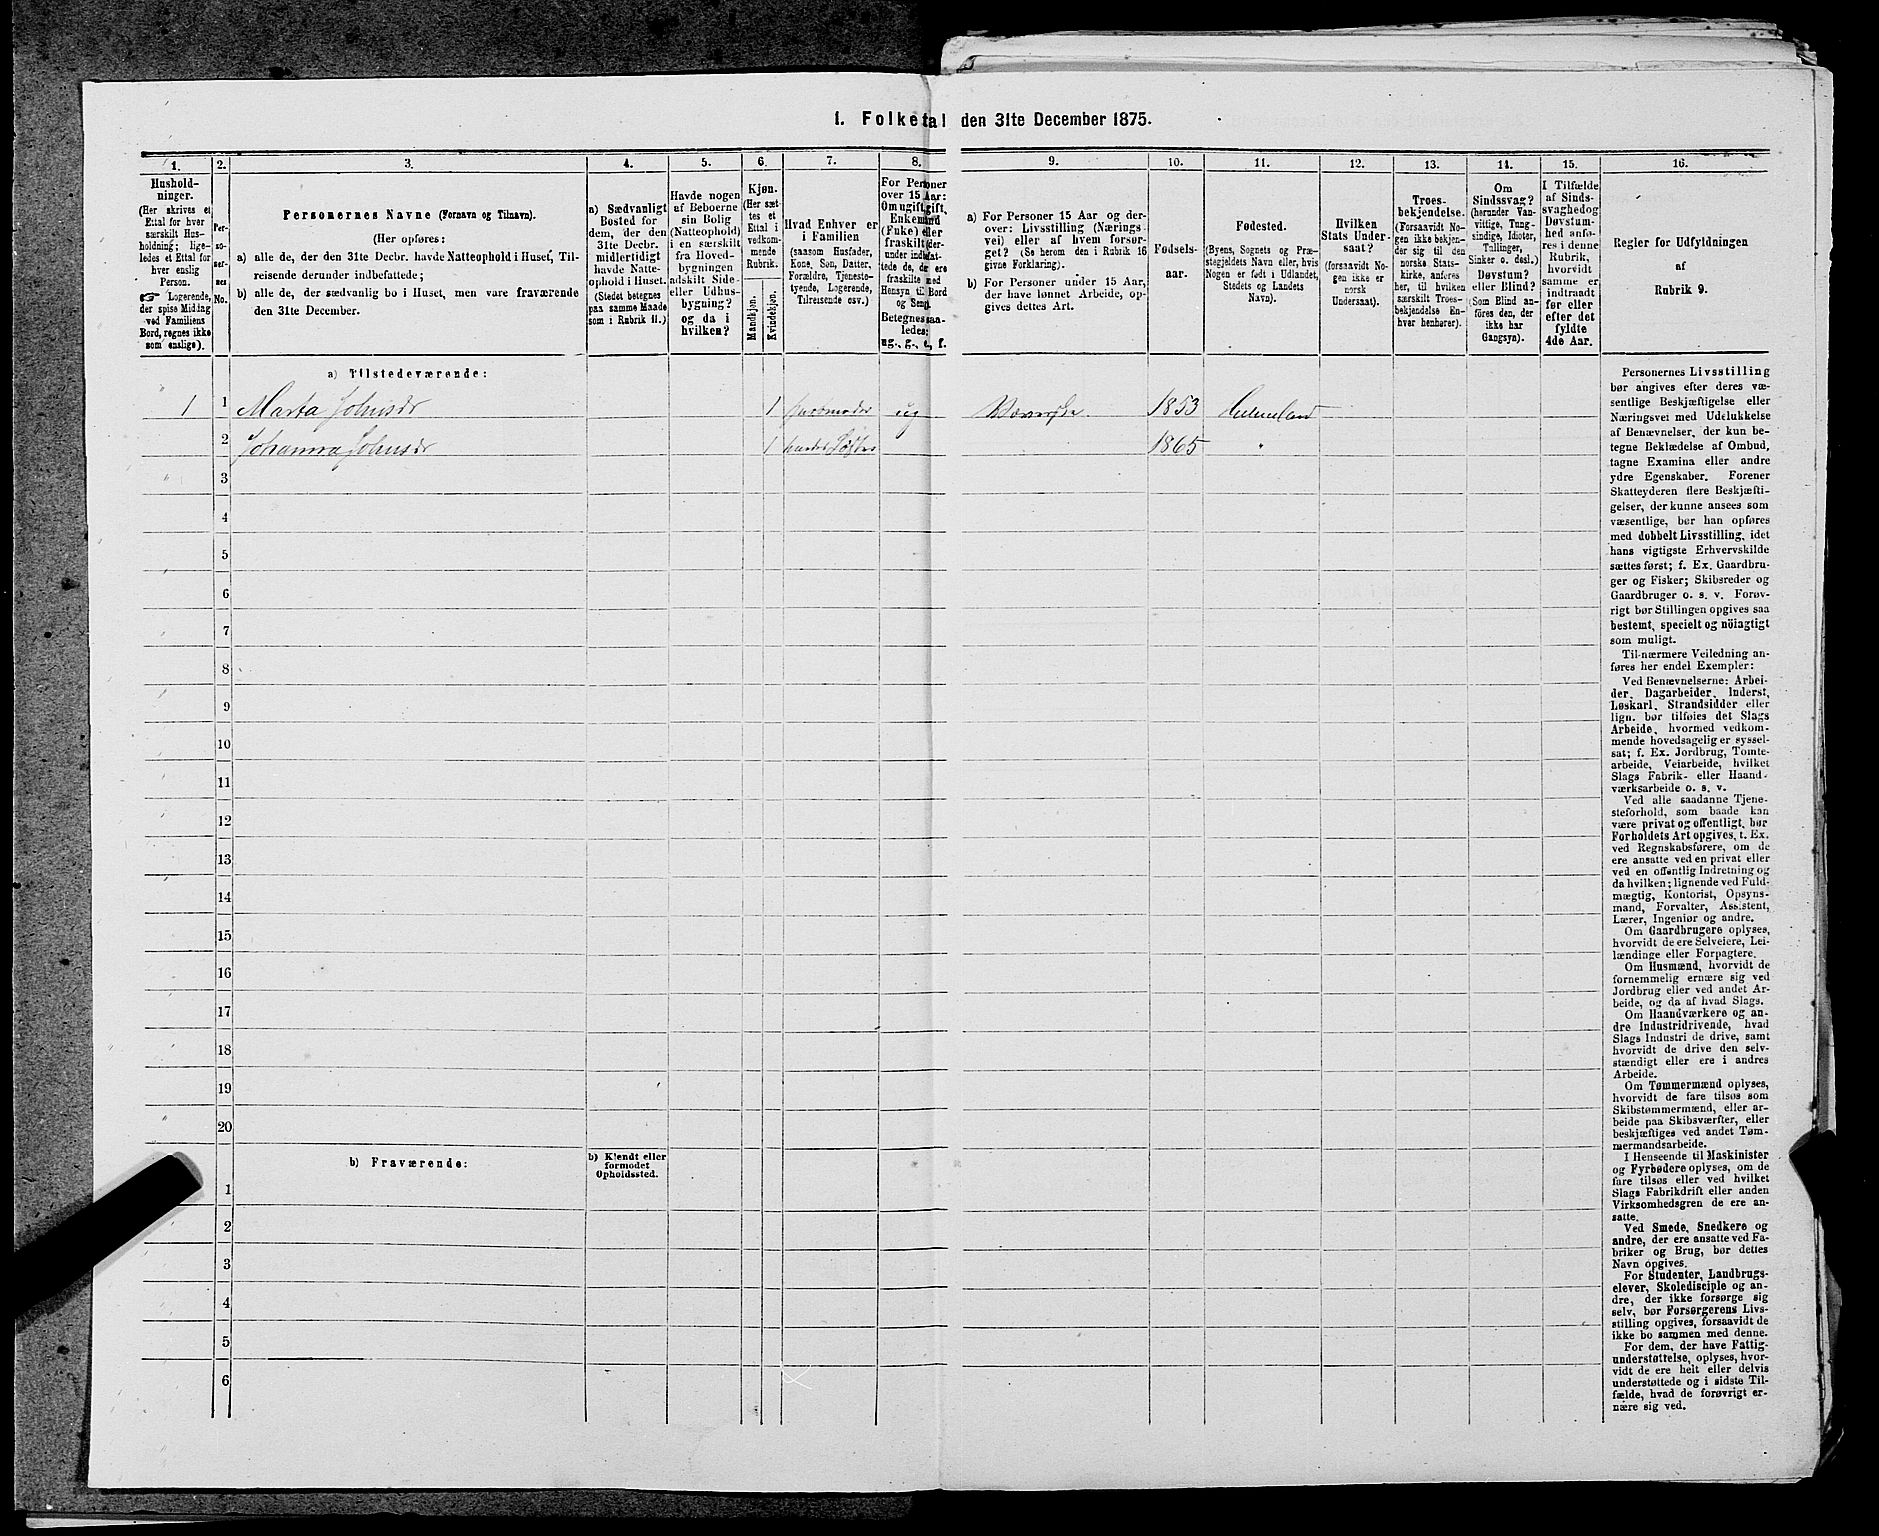 1. Folketal den 31te December 1875.
1.
2.
3.
4.
5.
6.
7.
8.
9.
10.
11.
12.
13.
14.
15.
16.
Hushold-
ninger.
(Her skrives et
Ettal for hver
særskilt Hus-
holdning; lige-
ledes et Ettal for
hver enslig
Person.
☞ Logerende,
der spise Middag
ved Familiens
Bord, regnes ikke
som enslige).
Per-
so-
ner-
nes
No.
Personernes Navne (Fornavn og Tilnavn).
(Her opføres:
a) alle de, der den 31te Decbr. havde Natteophold i Huset, Til-
reisende derunder indbefattede;
b) alle de, der sædvanlig bo i Huset, men vare fraværende
den 31te December.
a) Sædvanligt
Bosted for
dem, der den
31te Decbr.
midlertidigt
havde Natte-
ophold i Huset.
(Stedet betegnes
paa samme Maade
som i Rubrik 11.)
Havde nogen
af Beboerne
sin Bolig
(Natteophold)
i en særskilt
fra Hoved-
bygningen
adskilt Side-
eller Udhus-
bygning?
og da i
hvilken?
Kjøn.
(Her sæt-
tes et
Ettal i
vedkom-
mende
Rubrik.
Mandkjøn.
Kvindekjøn.
Hvad Enhver er
i Familien
(saasom Husfader,
Kone, Søn, Datter,
Forældre, Tjeneste-
tyende, Logerende,
Tilreisende osv.)
For Personer
over 15 Aar:
Om ugift, gift,
Enkemand
(Enke) eller
fraskilt, der-
under indbefat-
tede de, der ere
fraskilte med
Hensyn til Bord
og Seng.
Betegnes saa-
ledes:
ug., g., e., f.
a) For Personer 15 Aar og der-
over: Livsstilling (Nærings-
vei) eller af hvem forsør-
get? (Se herom den i Rubrik 16
givne Forklaring).
b) For Personer under 15 Aar,
der have lønnet Arbeide, op-
gives dettes Art.
Fødsels-
aar.
Fødested.
(Byens, Sognets og Præ-
stegjeldets Navn eller, hvis
Nogen er født i Udlandet,
Stedets og Landets
Navn).
Hvilken
Stats Under-
saat?
(forsaavidt No-
gen ikke er
norsk
Undersaat).
Troes-
bekjendelse.
(Forsaavidt No-
gen ikke bekjen-
der sig til den
norske Stats-
kirke, anføres
her, til hvilken
særskilt Troes-
bekjendelse En-
hver henhører).
Om
Sindssvag?
(herunder Van-
vittige, Tung-
sindige, Idioter,
Tullinger,
Sinker o. desl.)
Døvstum?
eller Blind?
(Som Blind an-
føres den, der
ikke har
Gangsyn).
I Tilfælde
af Sinds-
svaghed og
Døvstum-
hed anfø-
res i denne
Rubrik,
hvorvidt
samme er
indtraadt
før eller
efter det
fyldte
4de Aar.
Regler for Udfyldningen
af
Rubrik 9.
a) Tilstedeværende:
1 1 Marta Johnsdr 1 ug 1853
2 Johanna Johnsdr 1 1865 "
3
4
5
6
7
8
9
10
11
12
13
14
15
16
17
18
19
20
b) Fraværende:
b) Kjendt eller
formodet
Opholdssted.
1
2
3
4
5
6
Personernes Livsstilling
bør angives efter deres væ-
sentlige Beskjæftigelse eller
Næringsvei med Udelukkelse
af Benævnelser, der kun be-
tegne Beklædelse af Ombud,
tagne Examina eller andre
ydre Egenskaber. Forener
Skatteyderen flere Beskjæfti-
gelser, der kunne ansees som
væsentlige, bør han opføres
med dobbelt Livsstilling, idet
hans vigtigste Erhvervskilde
sættes først; f. Ex. Gaardbru-
ger og Fisker; Skibsreder og
Gaardbruger o. s. v. Forøv-
rigt bør Stillingen opgives saa
bestemt, specielt og nöiagtigt
som muligt.
Til nærmere Veiledning an-
føres her endel Exempler:
Ved Benævnelserne: Arbei-
der, Dagarbeider, Inderst,
Løskarl, Strandsidder eller
lign. bør tilføies det Slags
Arbeide, hvormed vedkom-
mende hovedsagelig er syssel-
sat; f. Ex. Jordbrug, Tomte-
arbeide, Veiarbeide, hvilket
Slags Fabrik- eller Haand-
værksarbeide o. s. v.
Ved alle saadanne Tjene-
steforhold, som baade kan
være privat og offentligt, bør
Forholdets Art opgives, t. Ex.
ved Regnskabsførere, om de
ere ansatte ved en privat eller
ved en offentlig Indretning og
da hvilken; lignende ved Fuld-
mægtig, Kontorist, Opsyns-
mand, Forvalter, Assistent,
Lærer, Ingeniør og andre.
Om Gaardbrugere oplyses,
hvorvidt de ere Selveiere, Lei-
lændinge eller Forpagtere.
Om Husmænd, hvorvidt de
fornemmelig ernære sig ved
Jordbrug eller ved andet Ar-
beide, og da af hvad Slags.
Om Haandværkere og an-
dre Industridrivende, hvad
Slags Industri de drive, samt
hvorvidt de drive den selv-
stændigt eller ere i andres
Arbeide.
Om Tømmermænd oplyses,
hvorvidt de fare tilsøs som
Skibstømmermænd, eller ar-
beide paa Skibsværfter, eller
beskjæftiges ved andet Tøm-
mermandsarbeide.
I Henseende til Maskinister
og Fyrbødere oplyses, om de
fare tilsøs eller ved hvilket
Slags Fabrikdrift eller anden
Virksomhedsgren de ere an-
satte.
Ved Smede, Snedkere og
andre, der ere ansatte ved Fa-
briker og Brug, bør dettes
Navn opgives.
For Studenter, Landbrugs-
elever, Skoledisciple og an-
dre, der ikke forsørge sig
selv, bør Forsørgerens Livs-
stilling opgives, forsaavidt de
ikke bo sammen med denne.
For dem, der have Fattig-
understøttelse, oplyses, hvor-
vidt de ere helt eller delvis
understøttede og i sidste Til-
fælde, hvad de forøvrigt er-
nære sig ved.